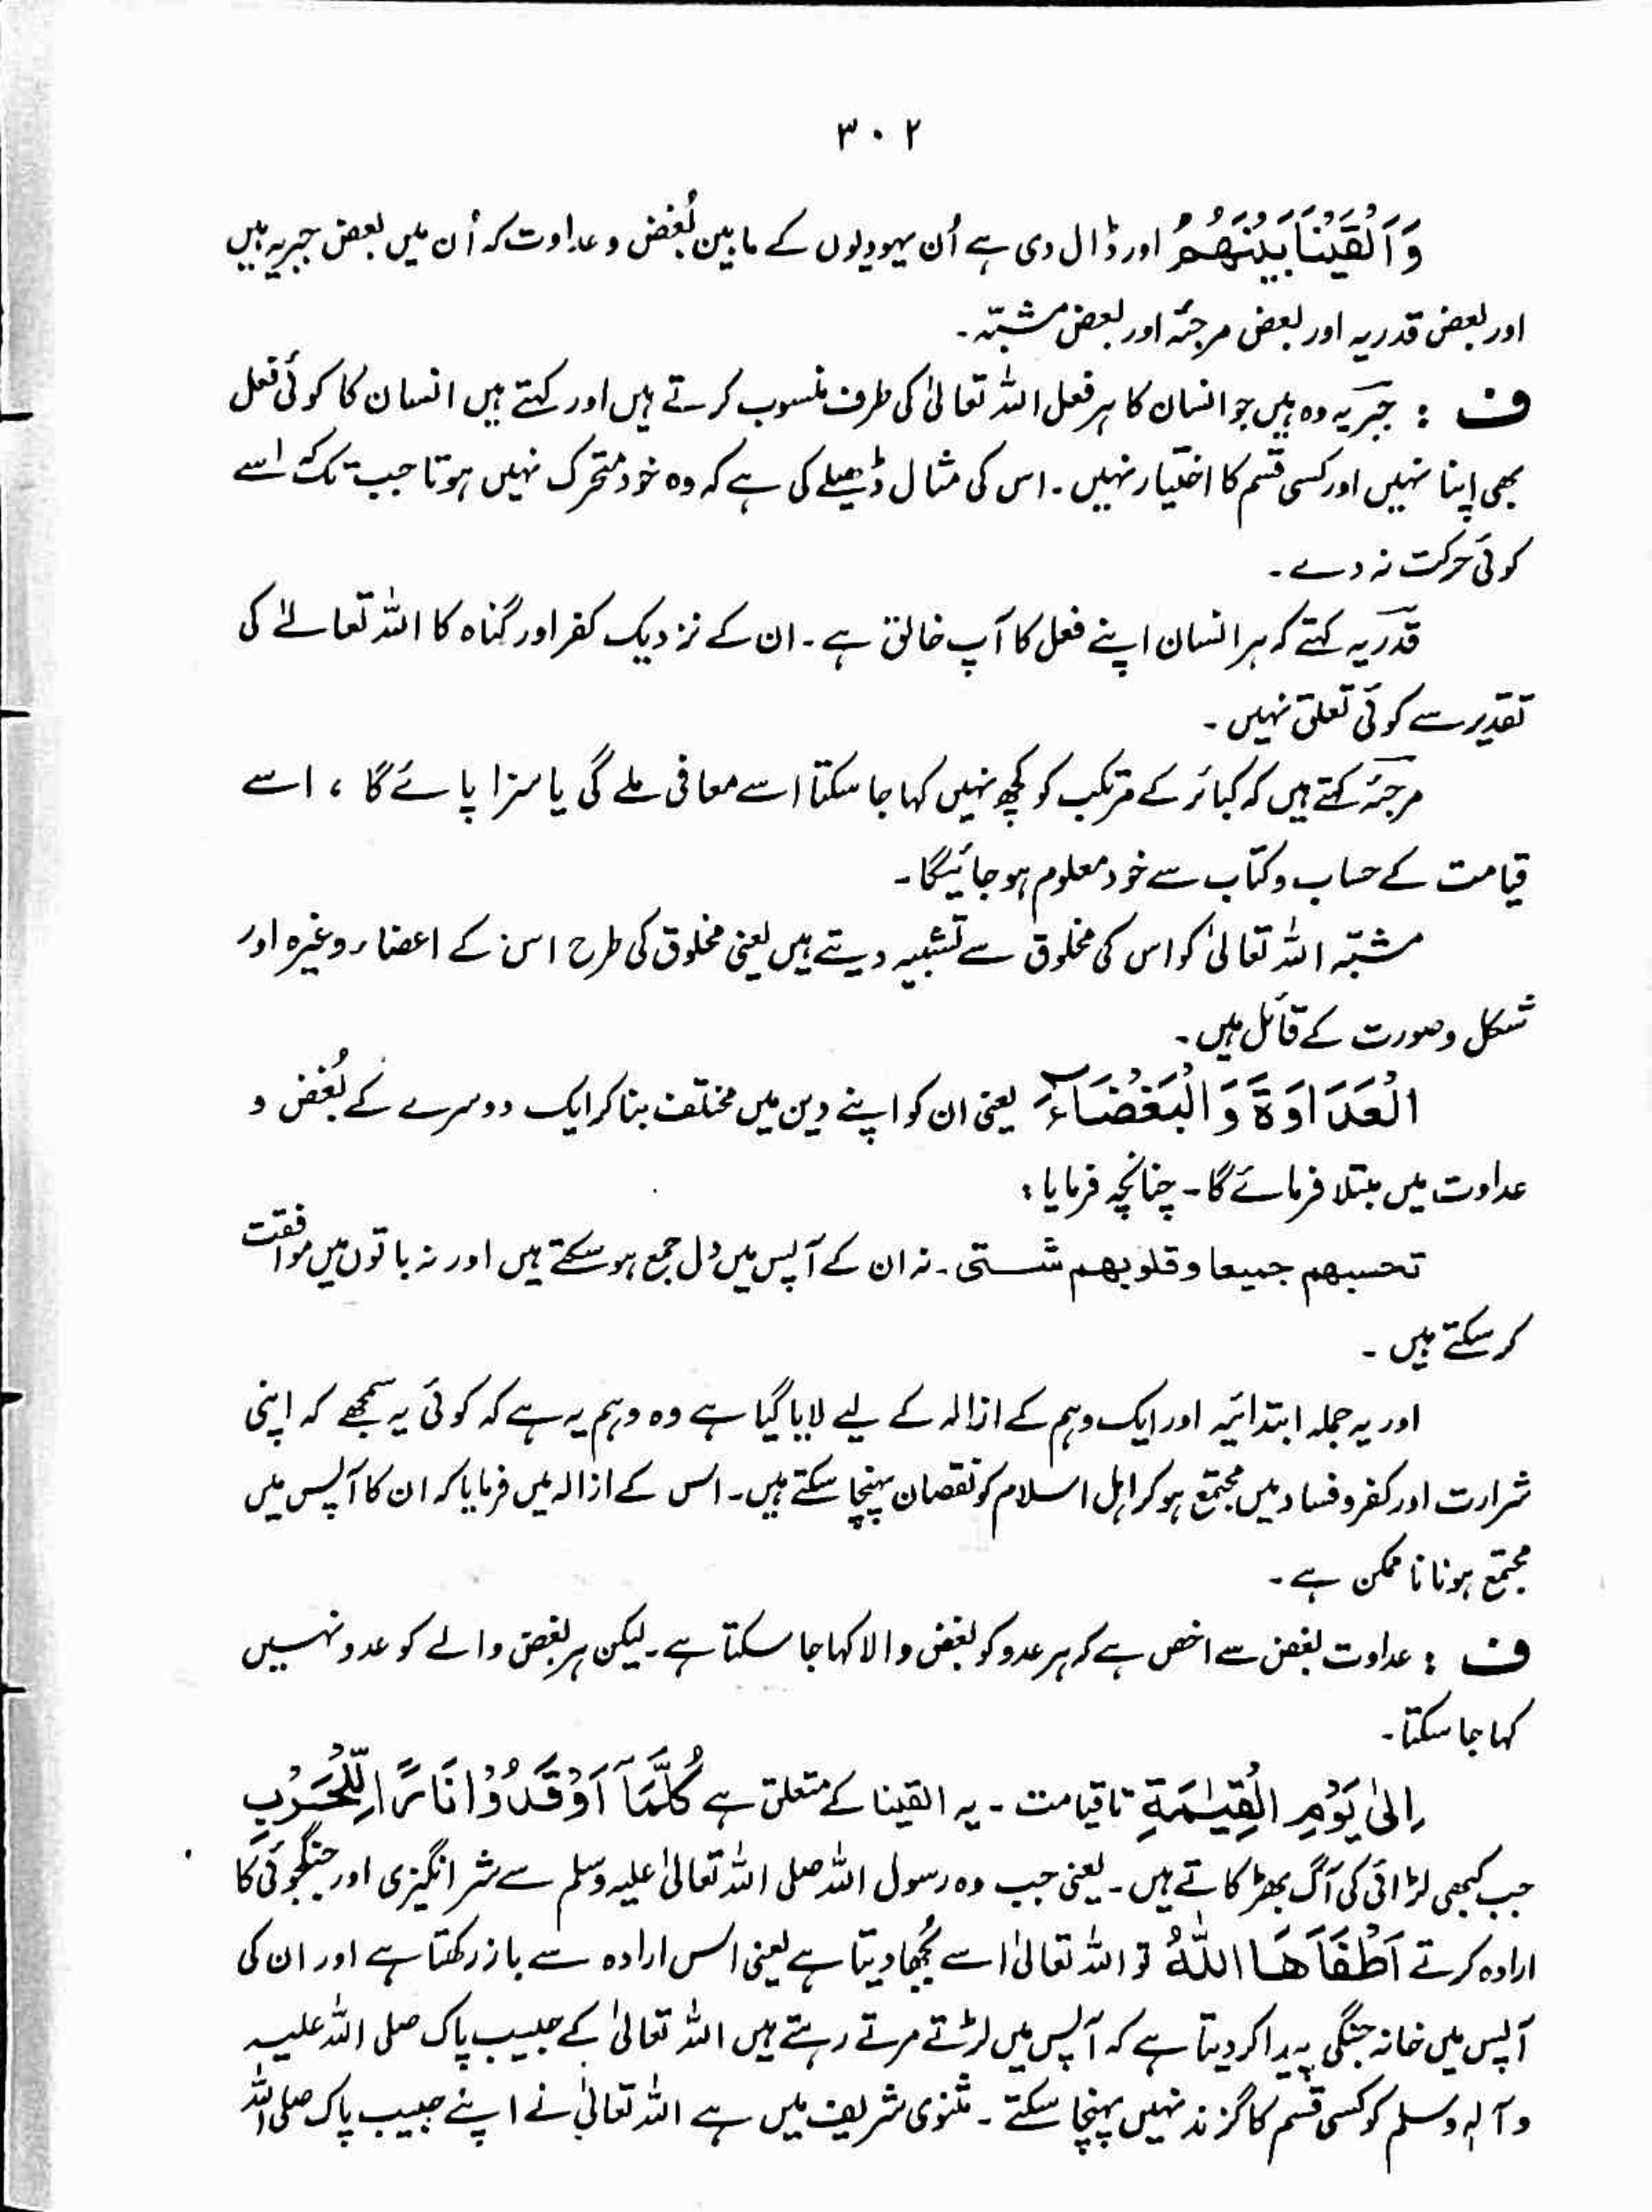 ۳۰۲
وَاَلْقَيْنَا بَيْنَهُمُ اور ڈال دی ہے اُن یہودیوں کے مابین بُغض و عداوت کہ اُن میں بعض جبریہ ہیں
اور بعض قدریہ اور بعض مرجئہ اور بعض مشبہّ۔
ف : جبریہ وہ ہیں جو انسان کا ہر فعل اللہ تعالیٰ کی طرف منسوب کرتے ہیں اور کہتے ہیں انسان کا کوئی فعل
بھی اپنا نہیں اور کسی قسم کا اختیار نہیں۔ اس کی مثال ڈھیلے کی ہے کہ وہ خود متحرک نہیں ہوتا جب تک کہ اسے
کوئی حرکت نہ دے۔
قدریہ کہتے کہ ہر انسان اپنے فعل کا آپ خالق ہے۔ ان کے نزدیک کفر اور گناہ کا اللہ تعالےٰ کی
تقدیر سے کوئی تعلق نہیں۔
مرجئہ کہتے ہیں کہ کبائر کے مرتکب کو کچھ نہیں کہا جا سکتا اسے معافی ملے گی یا سزا پائے گا ، اسے
قیامت کے حساب و کتاب سے خود معلوم ہو جائیگا۔
مشبہّ اللہ تعالیٰ کو اس کی مخلوق سے تشبیہ دیتے ہیں یعنی مخلوق کی طرح اس کے اعضاء وغیرہ اور
شکل و صورت کے قائل ہیں۔
الْعَدَاوَةَ وَالْبَغْضَآءَ یعنی ان کو اپنے دین میں مختلف بنا کر ایک دوسرے کے بُغض و
عداوت میں مبتلا فرمائے گا۔ چنانچہ فرمایا :
تحسبهم جميعا و قلوبهم شتى۔ نہ ان کے آپس میں دل جمع ہو سکتے ہیں اور نہ باتوں میں موافقت
کر سکتے ہیں۔
اور یہ جملہ ابتدائیہ اور ایک وہم کے ازالہ کے لیے لایا گیا ہے وہ وہم یہ ہے کہ کوئی یہ سمجھے کہ اپنی
شرارت اور کفر و فساد میں مجتمع ہو کر اہل اسلام کو نقصان پہنچا سکتے ہیں۔ اس کے ازالہ میں فرمایا کہ ان کا آپس میں
مجتمع ہونا ناممکن ہے۔
ف : عداوت بغض سے اخص ہے کہ ہر عدو کو بغض والا کہا جا سکتا ہے۔ لیکن ہر بغض والے کو عدو نہیں
کہا جا سکتا۔
اِلىٰ يَوْمِ الْقِيٰمَةِ تا قیامت۔ یہ القینا کے متعلق ہے كُلَّمَآ اَوْقَدُوْا نَارًا لِّلْحَرْبِ
جب کبھی لڑائی کی آگ بھڑکاتے ہیں۔ یعنی جب وہ رسول اللہ صلی اللہ تعالیٰ علیہ وسلم سے شر انگیزی اور جنگجوئی کا
ارادہ کرتے اَطْفَاَهَا اللّٰهُ تو اللہ تعالیٰ اسے بُجھا دیتا ہے یعنی اس ارادہ سے باز رکھتا ہے اور ان کی
آپس میں خانہ جنگی پیدا کر دیتا ہے کہ آپس میں لڑتے مرتے رہتے ہیں اللہ تعالیٰ کے حبیب پاک صلی اللہ علیہ
وآلہٖ وسلم کو کسی قسم کا گزند نہیں پہنچا سکتے۔ مثنوی شریف میں ہے اللہ تعالیٰ نے اپنے حبیب پاک صلی اللہ